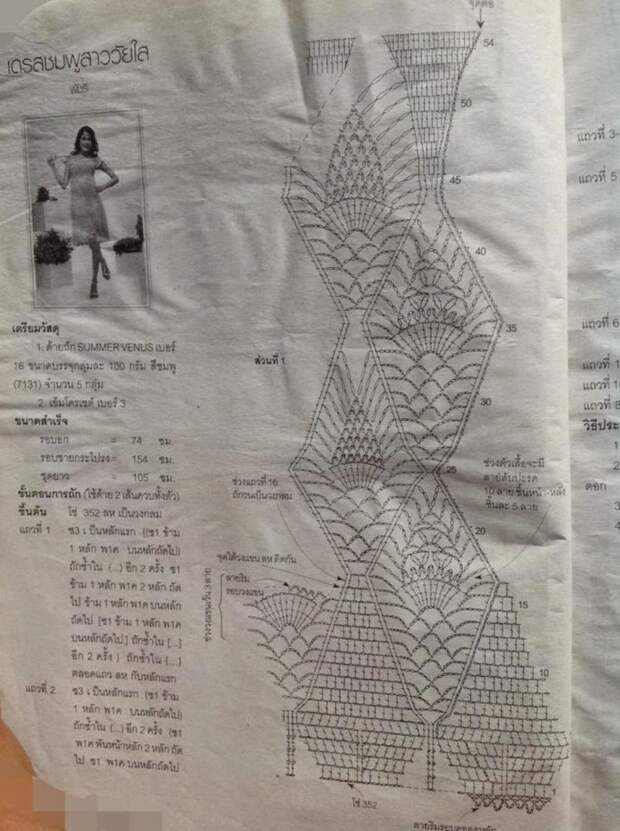 เดรสชมพูสาววัยใส
พัชรี
เตรียมวัสดุ
1. ด้ายถัก SUMMER VENUS เบอร์
16 ขนาดบรรจุกลุ่มละ 100 กรัม สีชมพู
(7131) จำนวน 5 กลุ่ม
2. เข็มโครเชต์ เบอร์ 3
ขนาดสำเร็จ
รอบอก = 74 ซม.
รอบชายกระโปรง = 154 ซม.
ชุดยาว = 105 ซม.
ขั้นตอนการถัก (ใช้ด้าย 2 เส้นควบทั้งตัว)
ขึ้นต้น โซ่ 352 ลห เป็นวงกลม
แถวที่ 1 ซ3 เป็นหลักแรก {(ซ1 ข้าม
1 หลัก พ1ค บนหลักถัดไป)
ถักซ้ำใน (...) อีก 2 ครั้ง ซ1
ข้าม 1 หลัก พ1ค 2 หลัก ถัด
ไป ข้าม 1 หลัก พ1ค บนหลัก
ถัดไป [ซ1 ข้าม 1 หลัก พ1ค
บนหลักถัดไป] ถักซ้ำใน [...]
อีก 2 ครั้ง } ถักซ้ำใน {...}
ตลอดแถว ลห กับหลักแรก
แถวที่ 2 ซ3 เป็นหลักแรก (ซ1 ข้าม
1 หลัก พ1ค บนหลักถัดไป)
ถักซ้ำใน (...) อีก 2 ครั้ง (ซ1
พ1ค พันหน้าหลัก 2 หลัก ถัด
ไป ซ1 พ1ค บนหลักถัดไป
54
50
45
40
35
ส่วนที่ 1
30
25
ช่วงแถวที่ 16
ถักวนเป็นวงกลม
ช่วงตัวเสื้อจะมี
ลายสับปะรด
10 ลาย ชิ้นหน้า-หลัง
ชิ้นละ 5 ลาย
20
ชุดใต้วงแขน ลห ติดกัน
ลายริม
รอบวงแขน
15
10
1
โซ่ 352
แถวที่ 3-
แถวที่ 5
แถวที่ 6
แถวที่ 1
แถวที่ 1
แถวที่ 8
วิธีประ
1
2
ดอก
3
4